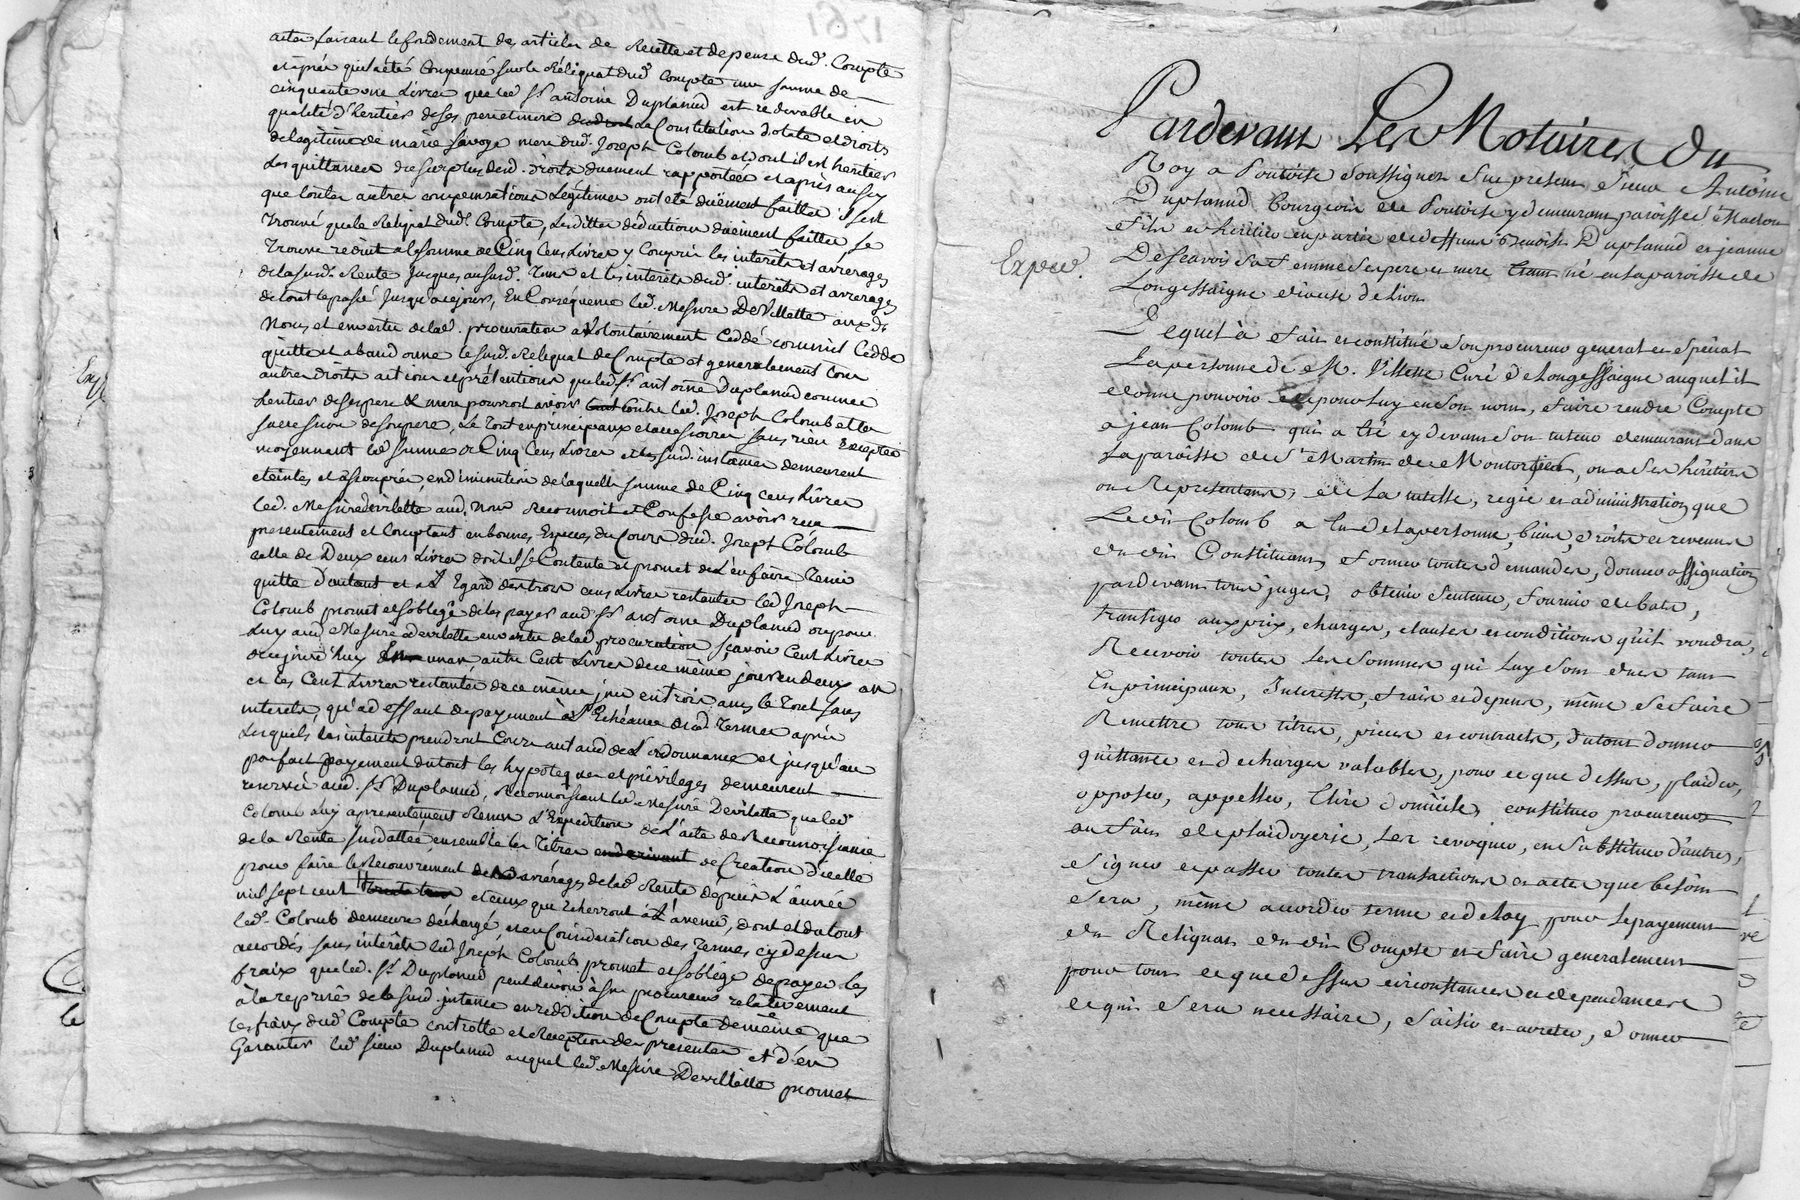 actes faisant le fondement des articles de Recette et depense dud. Compte
et après qu'il a été compensé sur le Réliquat dud. compte une somme de
cinquante une Livres que led. Sr antoine Duplanud est redevable en
qualité d'heritier de ses pere et mere de la Constitution dotale et droits
de legitime de marie Savoye mere dud. Joseph Colomb et dont il est heritier
Les quittances du surplus desd. droits duement rapportées et après aussy
que toutes autres compensations Légitimes ont eté duëment faittes il s'est
trouvé que le Reliqat dud. Compte, Lesdittes déductions duëment faittes se
trouve reduit a la somme de Cinq Cens Livres y Compris les interêts et arrerages
de la susd. Rente Jusques au susd. tems et les interêts dud. interêts et arrerages
de tout le passé Jusqu'a ce jour, En Conséquence led. Messire DeVillette aux d.
Noms et en vertu de lad. procuration a Volontairement Ceddé comme il Cedde
quitte et abandonne le susd. Reliquat de Compte et generalement tous
autres droits actions et prétentions que led. Sr antoine Duplanud comme
heritier de ses pere & mere pourroit avoir contre led. Joseph Colomb et la
succession de son pere, Le tout en principaux et accessoires sans rien Excepter
moyennant lad. somme de Cinq Cens Livres et lesd. instances demeurent
eteintes et assoupies, en diminution de laquelle somme de Cinq cens Livres
led. Messire devilette aud. Nom Reconnoit et Confesse avoir reçu
presentement et Comptant en bonnes Especes du Cours dud. Joseph Colomb
celle de Deux cens Livres dont il se Contente et promet de L'en faire Tenir
quitte d'autant et a L'Egard des trois cens Livres restantes led. Joseph
Colomb promet et s'oblege de les payer aud. Sr antoine Duplanud ou pour
Luy aud. Messire devilette en vertu de lad. procuration, sçavoir Cent Livres
de ce jourd'huy en un an, autre Cent Livres de ce même jour en deux ans
et les Cent Livres restantes de ce même jour en trois ans le Tout sans
interets, qu'a deffaut de payement à L'Echéance desd. Termes après
Lesquels les interêts prendront Cours au taud de L'ordonnance et jusqu'au
parfait payement du tout les hypoteques et privileges demeurent
reservés aud. Sr Duplanud, Reconnoissant led. Messire Devilette que led.
Colomb Luy a presentement Remis L'Expedition de L'acte de Reconnoissance
de la Rente susdattée, ensemble les Titres de Creation d'icelle
pour faire le Recouvrement des arrerages de lad. Rente depuis L'année
mil sept cent et ceux qui Echerront à L'avenir, dont et du tout
led. Colomb demeure déchargé, et en Considération des Termes cy dessus
accordés sans interêts led. Joseph Colomb promet et s'oblége de payer les
fraix que led. Sr Duplanud peut devoir à son procureur relativement
à la reprise de la susd. instance en reddition de Compte de même que
les fraix dud. Compte controlle et Reception des presentes et d'en
Garantir led. sieur Duplanud auquel led. Messire Devillette promet
1761
Pardevant Les Notaires du
Roy a Pontoise soussignés fut present Sieur Antoine
Duplanud Bourgeois de Pontoise y demeurant paroisse St Maclou
fils et heritier en partie de deffunts Benoist Duplanud et jeanne
Desgavois sa femme ses pere et mere étant né en la paroisse de
Longessaigne diocese de Lion
Expée.
Lequel a fait et constitué son procureur general et special
La personne de M. Villette Curé de Longessaigne auquel il
donne pouvoir de pour Luy en son nom, faire rendre Compte
a jean Colomb qui a été cy devant son tuteur demeurant dans
La paroisse de St Martin de Montortier, ou a ses héritiers
ou Representans, de La tutelle, regie et administration que
Ledit Colomb a eu de La personne, biens, droits et revenus
du dit Constituant, former toutes demandes, donner assignation
pardevant tous juges, obtenir Sentence, fournir debats,
transiger aux prix, charges, clauses et conditions qu'il voudra,
Recevoir toutes Les Sommes qui Luy sont dues tant
En principaux, Interests, frais et depens, même Se faire
Remettre tous titres, pieces et contracts, du tout donner
quittance et decharges valables, pour ce que dessus, plaider,
opposer, appeller, Elire domicile, constituer procureurs
au fait de plaidoyerie, Les revoquer, en Substituer d'autres,
Signer et passer toutes transactions et actes que besoin
Sera, même accorder terme et delay pour Le payement
du Reliquat du dit Compte et faire generalement
pour tout ce que dessus circonstances et dependances
ce qui Sera necessaire, Saisir et arreter, donner